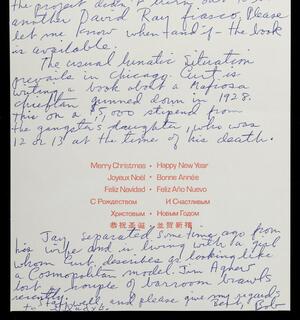 the project didn't turn out to be
another David Ray fiasco. Please
let me know when – and if – the book
is available.
The usual lunatic situation
prevails in Chicago. Curt is
writing a book about a Mafiosa
chieftan gunned down in 1928.
This on a $5,000 stipend from
the gangster's daughter, who was
12 or 13 at the time of his death.
Merry Christmas • Happy New Year
Joyeux Noël • Bonne Année
Feliz Navidad • Feliz Año Nuevo
С Рождеством • И Счастливым
Христовым • Новым Годом
恭祝圣誕 • 並贺新禧
Jay separated some time ago from
his wife and is living with a girl
whom Curt describes as looking like
a Cosmopolitan model. Jim Agnew
lost a couple of barroom brawls
recently.
Stay well, and please give my regards
to Gladys. Best, Bob